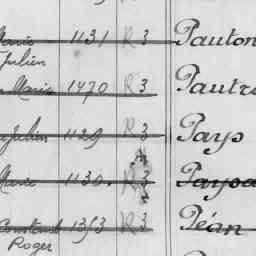 Marie 1131 R 3 Pauton
Julien
Marie 1470 R 3 Pautr
Julien 1129 R 3 Pays
Marie 1130 R 3 Paysa
Constant 1313 R 3 Péan
Roger